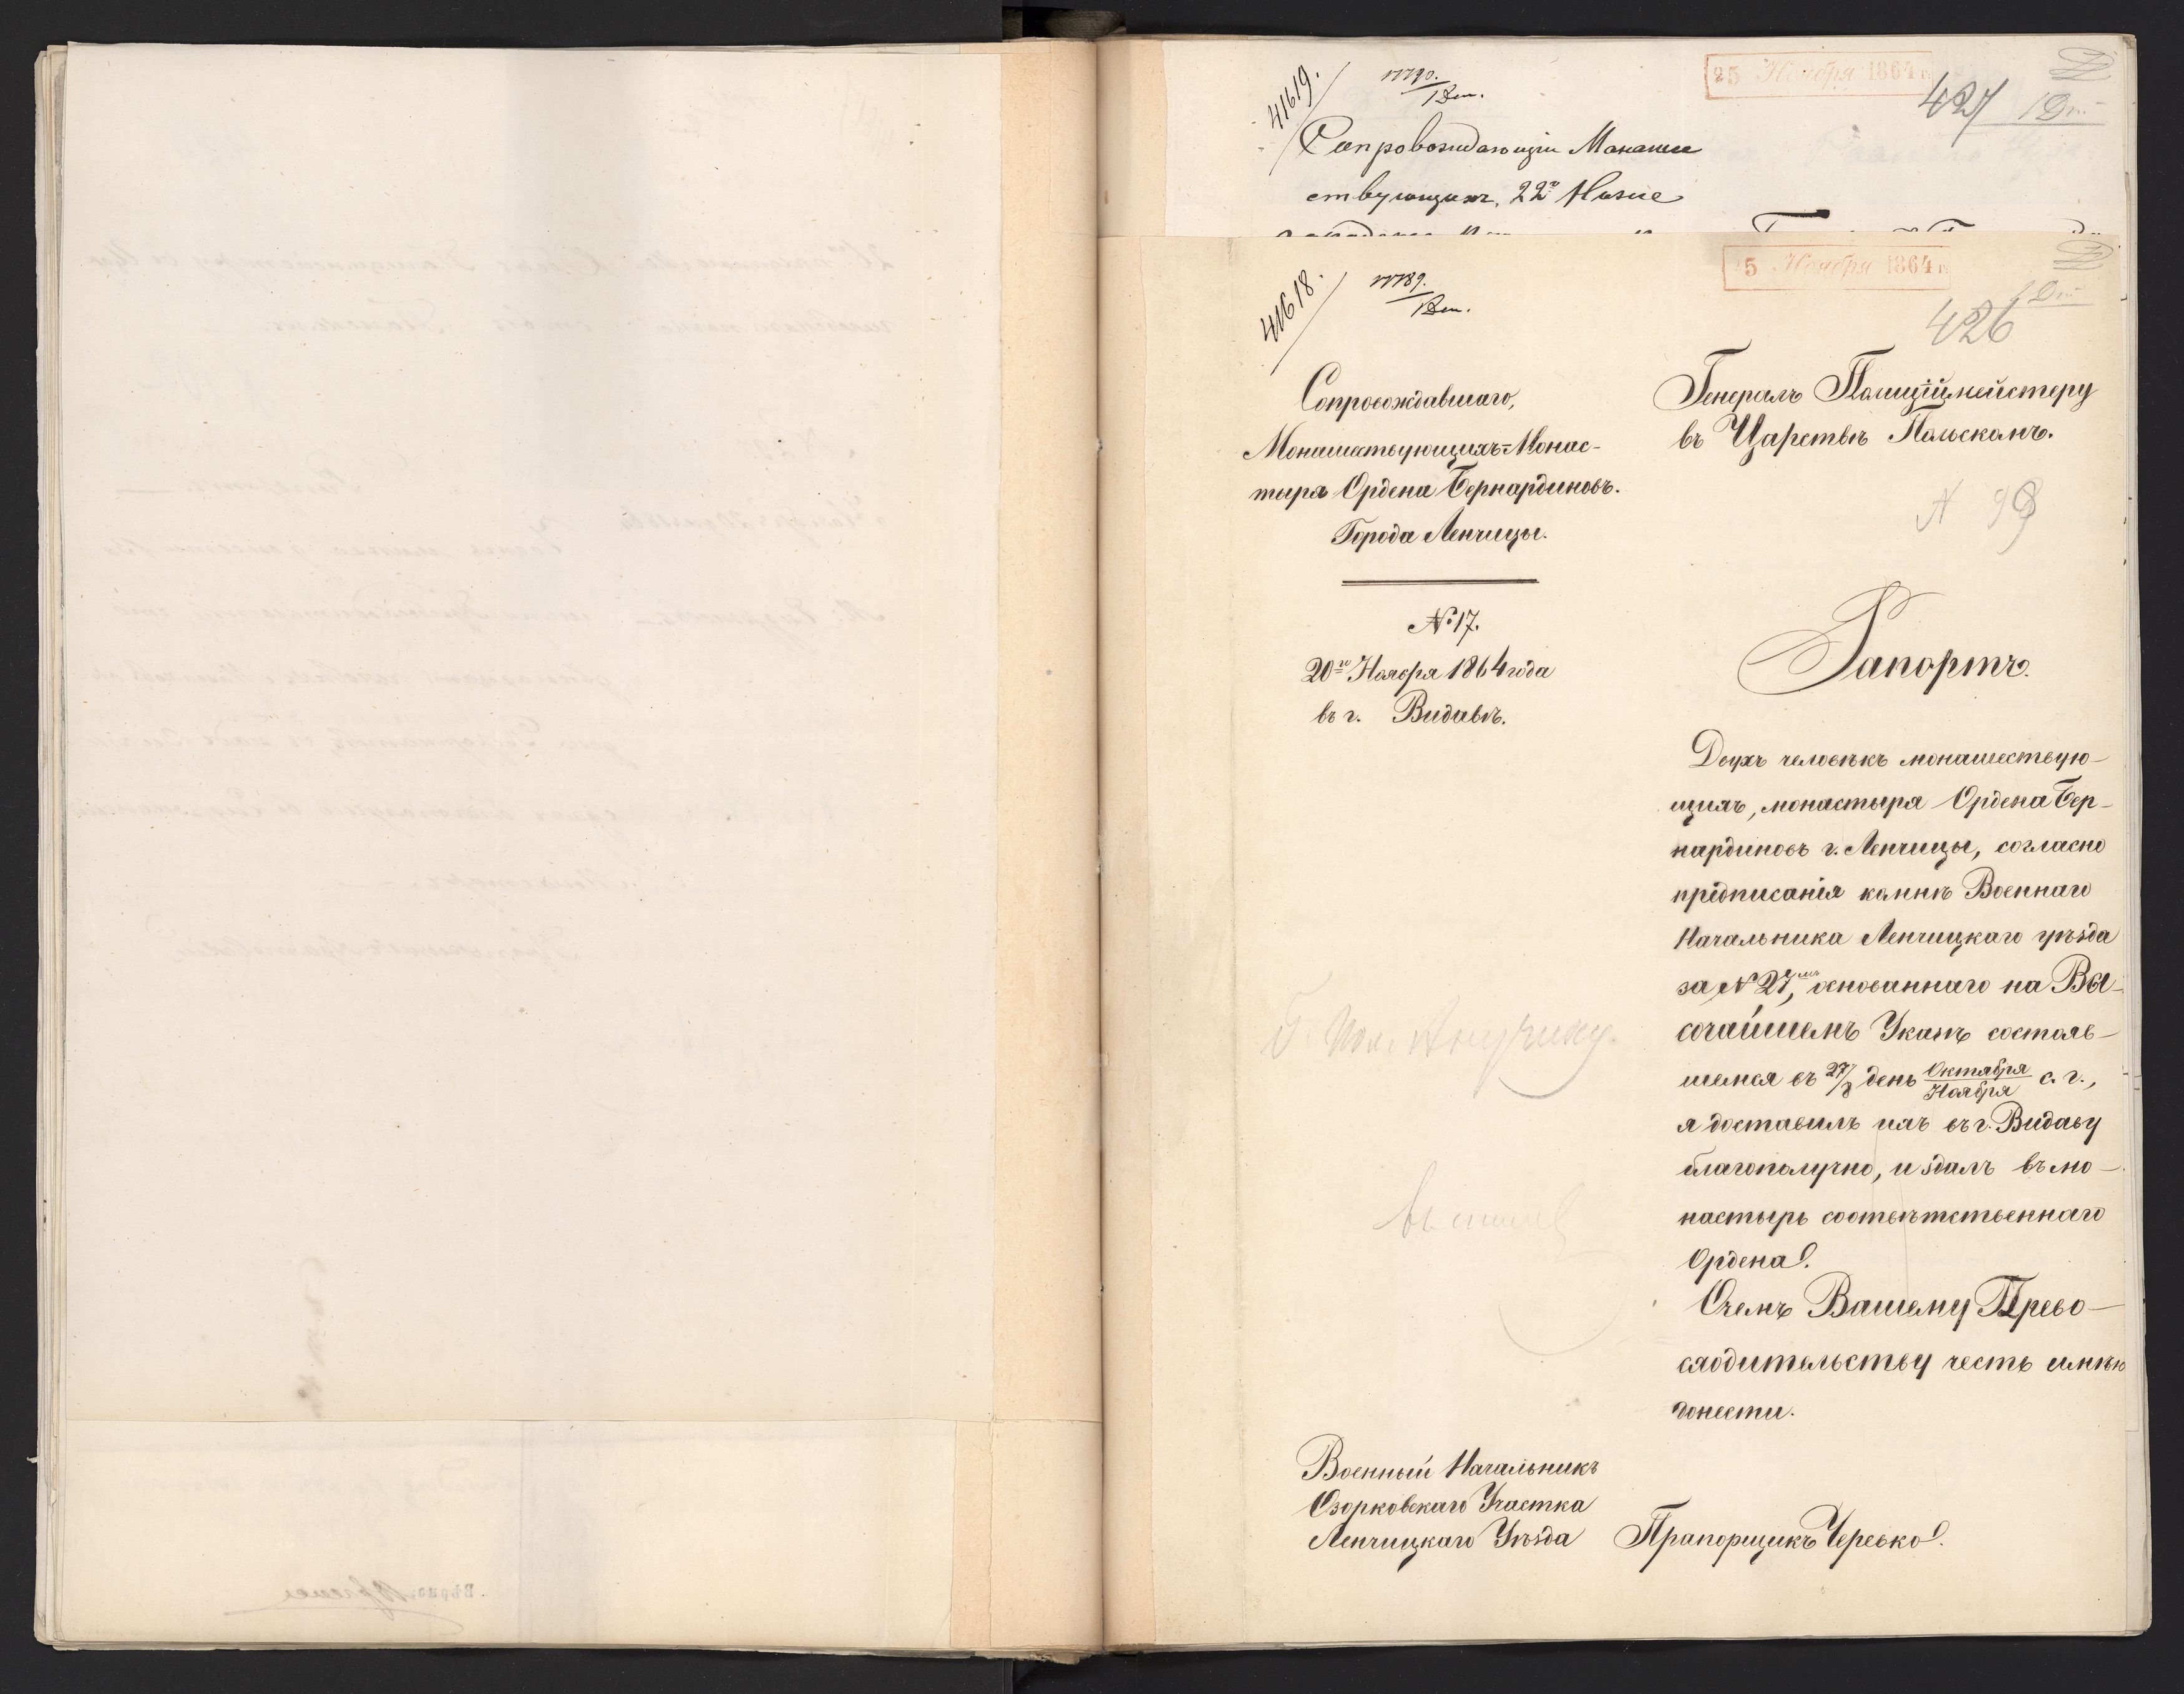 41619.
17790.
25 Ноября 1864 г.
427
Сопровождающій Монаше
ствующихъ, 22го Низше
41618.
17789.
5 Ноября 1864 г.
426
Сопровождавшаго,
Монашествующихъ Монас-
тыря Ордена Бернардиновъ.
Города Ленчицы.
№ 17.
20го Ноября 1864 года
въ г. Видавѣ.
Генералъ Полиціймейстеру
въ Царствѣ Польскомъ.
Рапортъ.
Двухъ человѣкъ монашествую-
щихъ, монастыря Ордена Бер-
нардиновъ г. Ленчицы, согласно
предписанія комнѣ Военнаго
Начальника Ленчицкаго уѣзда
за № 27, основаннаго на Вы-
сочайшемъ Указѣ состояв-
шемся въ 27/8 день Октября/Ноября с. г.,
я доставилъ ихъ въ г. Видаву
благополучно, и здалъ въ мо-
настырь соотвѣтственнаго
Ордена.
Очемъ Вашему Прево-
сходительству честь имѣю
донести.
Военный Начальникъ
Озорковскаго Участка
Ленчицкаго Уѣзда Прапорщикъ Черевко.